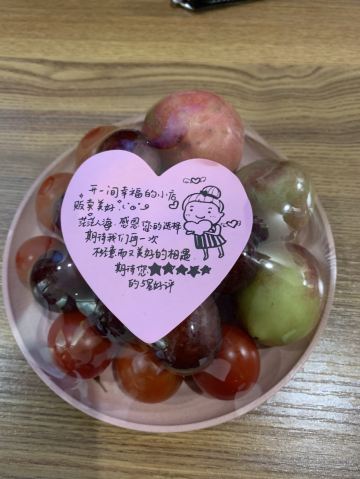 开一间幸福的小店
贩卖美好
茫茫人海 感恩您的选择
期待我们再一次
不经意而又美好的相遇
期待您★★★★★
的深好评